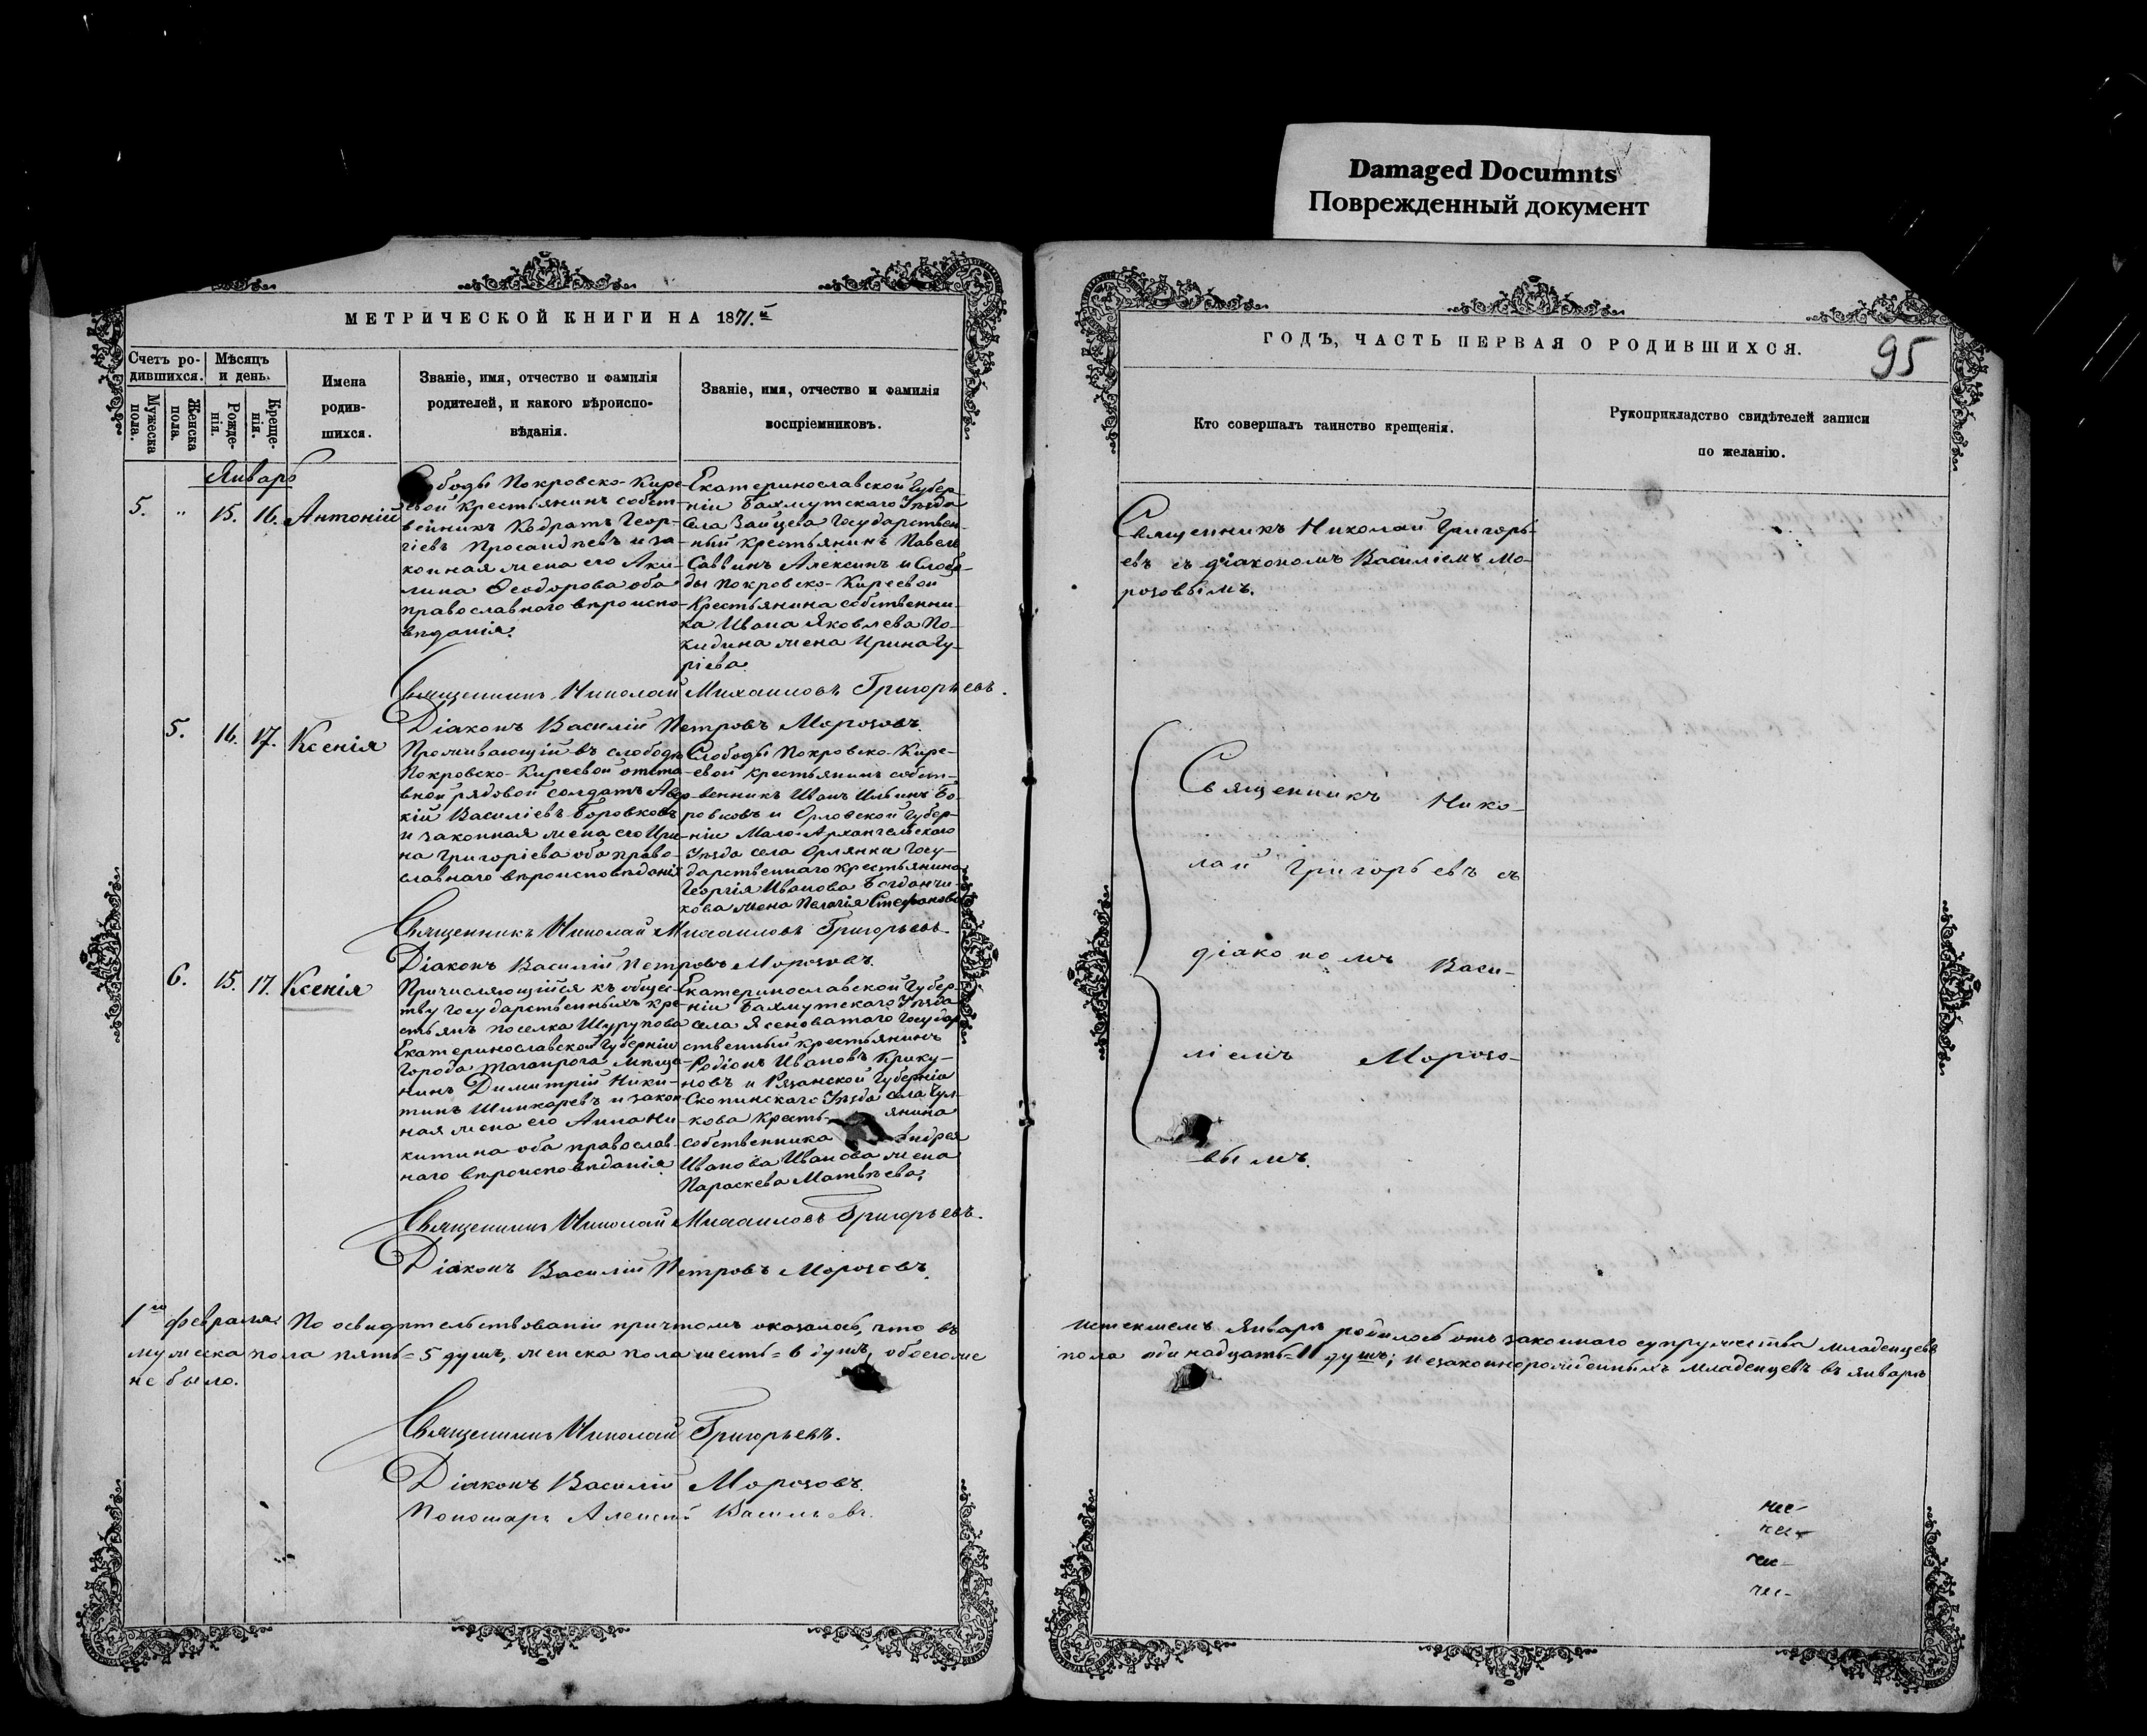 Damaged Documnts
Поврежденный документ
МЕТРИЧЕСКОЙ КНИГИ НА 1871.й
Счетъ ро-
дившихся.
Мѣсяцъ
и день.
Мужеска
пола.
Женска
пола.
Рожде-
нія.
Креще-
нія.
Имена
родив-
шихся.
Званіе, имя, отчество и фамилія
родителей, и какого вѣроиспо-
вѣданія.
Званіе, имя, отчество и фамилія
воспріемниковъ.
Январь
5. " 15. 16. Антоній
боды Покровско-Кире-
евой крестьянинъ собст-
венникъ Кодратъ Геор-
гіевъ и за-
конная жена его Аки-
лина Ѳеодорова оба
православнаго вѣроиспо-
вѣданія.
Екатеринославской Губер-
ніи Бахмутскаго Уѣзда
села Зайцева Государствен-
ный крестьянинъ Павелъ
Саввинъ Алексинъ и Слобо-
ды Покровско-Киреевой
Крестьянина собственни-
ка Ивана Яковлева По-
кидина жена Ирина Гу-
ріева.
Священникъ Николай Михаиловъ Григорьевъ.
Діаконъ Василій Петровъ Морозовъ.
5. 16. 17. Ксенія
Проживающій въ слободѣ
Покровско-Киреевой отста-
вной рядовой солдатъ
Василіевъ Боровковъ
и законная жена его Ири-
на Григоріева оба право-
славнаго вѣроисповѣданія
Слободы Покровско-Кире-
евой крестьянинъ собст-
венникъ Иванъ Ильинъ Бо-
ровковъ и Орловской Губер-
ніи Мало-Архангельскаго
Уѣзда села Орлянки Госу-
дарственнаго крестьянина
Георгія Иванова Богданчи-
кова жена Пелагія Стефанова
Священникъ Николай Михаиловъ Григорьевъ.
Діаконъ Василій Петровъ Морозовъ.
6. 15. 17. Ксенія
Причисляющійся къ общес-
тву государственныхъ кре-
стьянъ поселка Шурупова
Екатеринославской Губерніи
Города Таганрога мѣща-
нинъ Димитрій Ники-
тинъ Шинкаревъ и закон
ная жена его Анна Ни-
китина оба православ-
наго вѣроисповѣданія
Екатеринославской Губер-
ніи Бахмутскаго Уѣзда
села Ясеноватаго Государ
ственный крестьянинъ
Родіонъ Ивановъ Крику-
новъ и Рязанской Губерніи
Скопинскаго Уѣзда села
кова Кресть- янина
собственника Андрея
Иванова Иванова жена
Параскева Матвѣева.
Священникъ Николай Михаиловъ Григорьевъ.
Діаконъ Василій Петровъ Морозовъ.
1го февраля. По освидѣтельствованіи причтомъ оказалось, что въ
мужеска пола пять=5 душъ, женска пола шесть=6 душъ, обоего же
не было.
Священникъ Николай Григорьевъ.
Діаконъ Василій Морозовъ.
Пономарь Алексій Васильевъ.
ГОДЪ, ЧАСТЬ ПЕРВАЯ О РОДИВШИХСЯ.
95
Кто совершалъ таинство крещенія.
Рукоприкладство свидѣтелей записи
по желанію.
Священникъ Николай Григорь-
евъ съ діакономъ Василіемъ Мо-
розовымъ.
Священникъ Нико-
лай Григорьевъ съ
діакономъ Васи-
ліемъ Морозо-
вымъ.
истекшемъ Январѣ родилось отъ законнаго супружества младенцевъ
пола одинадцать=11 душъ; незаконнорожденныхъ младенцевъ въ январѣ